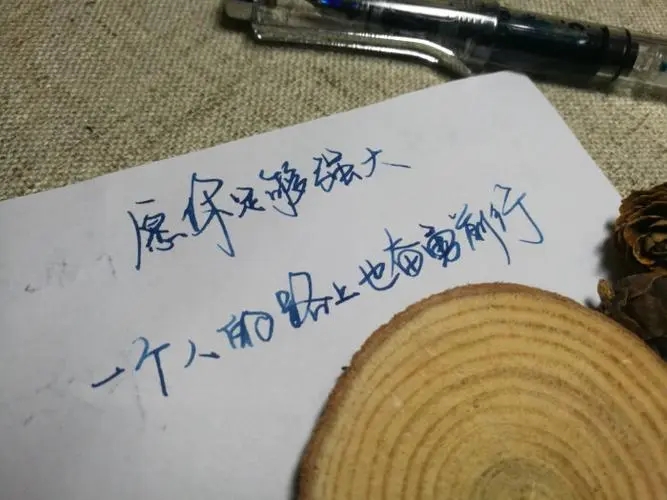 愿保足够强大
一个人的路上也奋勇前行